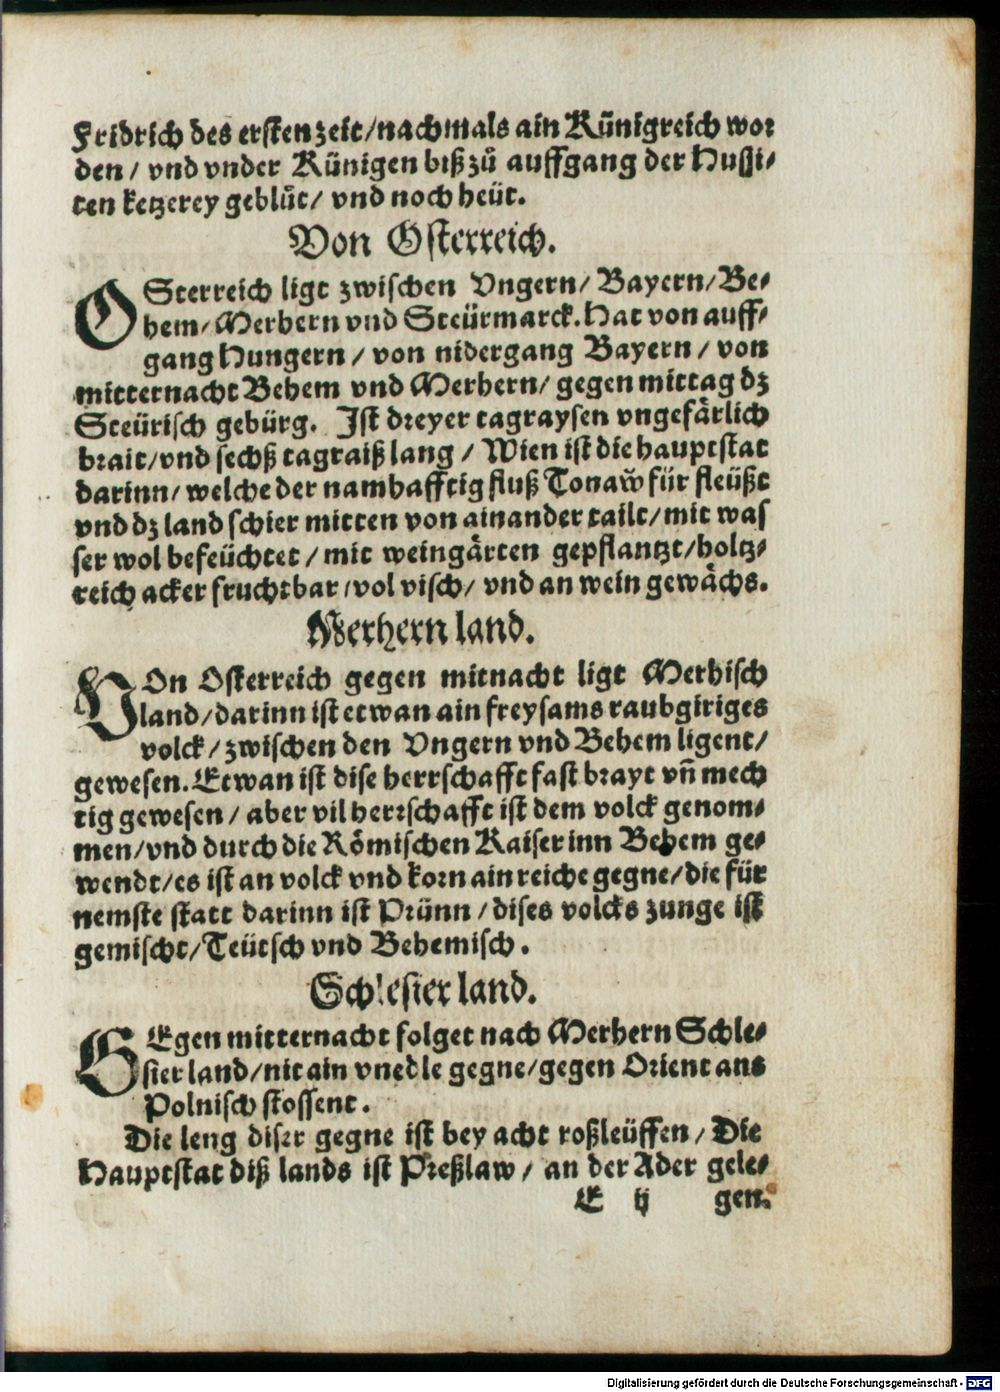 Fridrich des ersten zeit/nachmals ain Künigreich wor
den/ vnd vnder Künigen biß zů auffgang der Hussi⸗
ten ketzerey geblůt/ vnd noch heüt.
Von Osterreich.
OSterreich ligt zwischen Vngern/ Bayern/Be⸗
hem/Merhern vnd Steürmarck. Hat von auff⸗
gang Hungern/ von nidergang Bayern/ von
mitternacht Behem vnd Merhern/ gegen mittag dz
Steürisch gebürg. Ist dreyer tagraysen vngefärlich
brait/vnd sechß tagraiß lang/ Wien ist die hauptstat
darinn/welche der namhafftig fluß Tonaw̌ für fleüßt
vnd dz land schier mitten von ainander tailt/mit was
ser wol befeüchtet/ mit weingärten gepflantzt/holtz⸗
reich acker fruchtbar/vol visch/ vnd an wein gewächs.
Merhern land.
VOn Osterreich gegen mitnacht ligt Merhisch
land/darinn ist etwan ain freysams raubgiriges
volck/zwischen den Vngern vnd Behem ligent/
gewesen. Etwan ist dise herrschafft fast brayt vñ mech
tig gewesen/ aber vil herrschafft ist dem volck genom⸗
men/vnd durch die Römischen Kaiser inn Behem ge⸗
wendt/es ist an volck vnd korn ain reiche gegne/die für
nemste statt darinn ist Prünn/dises volcks zunge ist
gemischt/Teütsch vnd Behemisch.
Schlesier land.
GEgen mitternacht folget nach Merhern Schle⸗
sier land/nit ain vnedle gegne/gegen Orient ans
Polnisch stossent.
Die leng diser gegne ist bey acht roßleüffen/Die
Hauptstat diß lands ist Preßlaw/ an der Ader gele⸗
E ij gen.
Digitalisierung gefördert durch die Deutsche Forschungsgemeinschaft - DFG